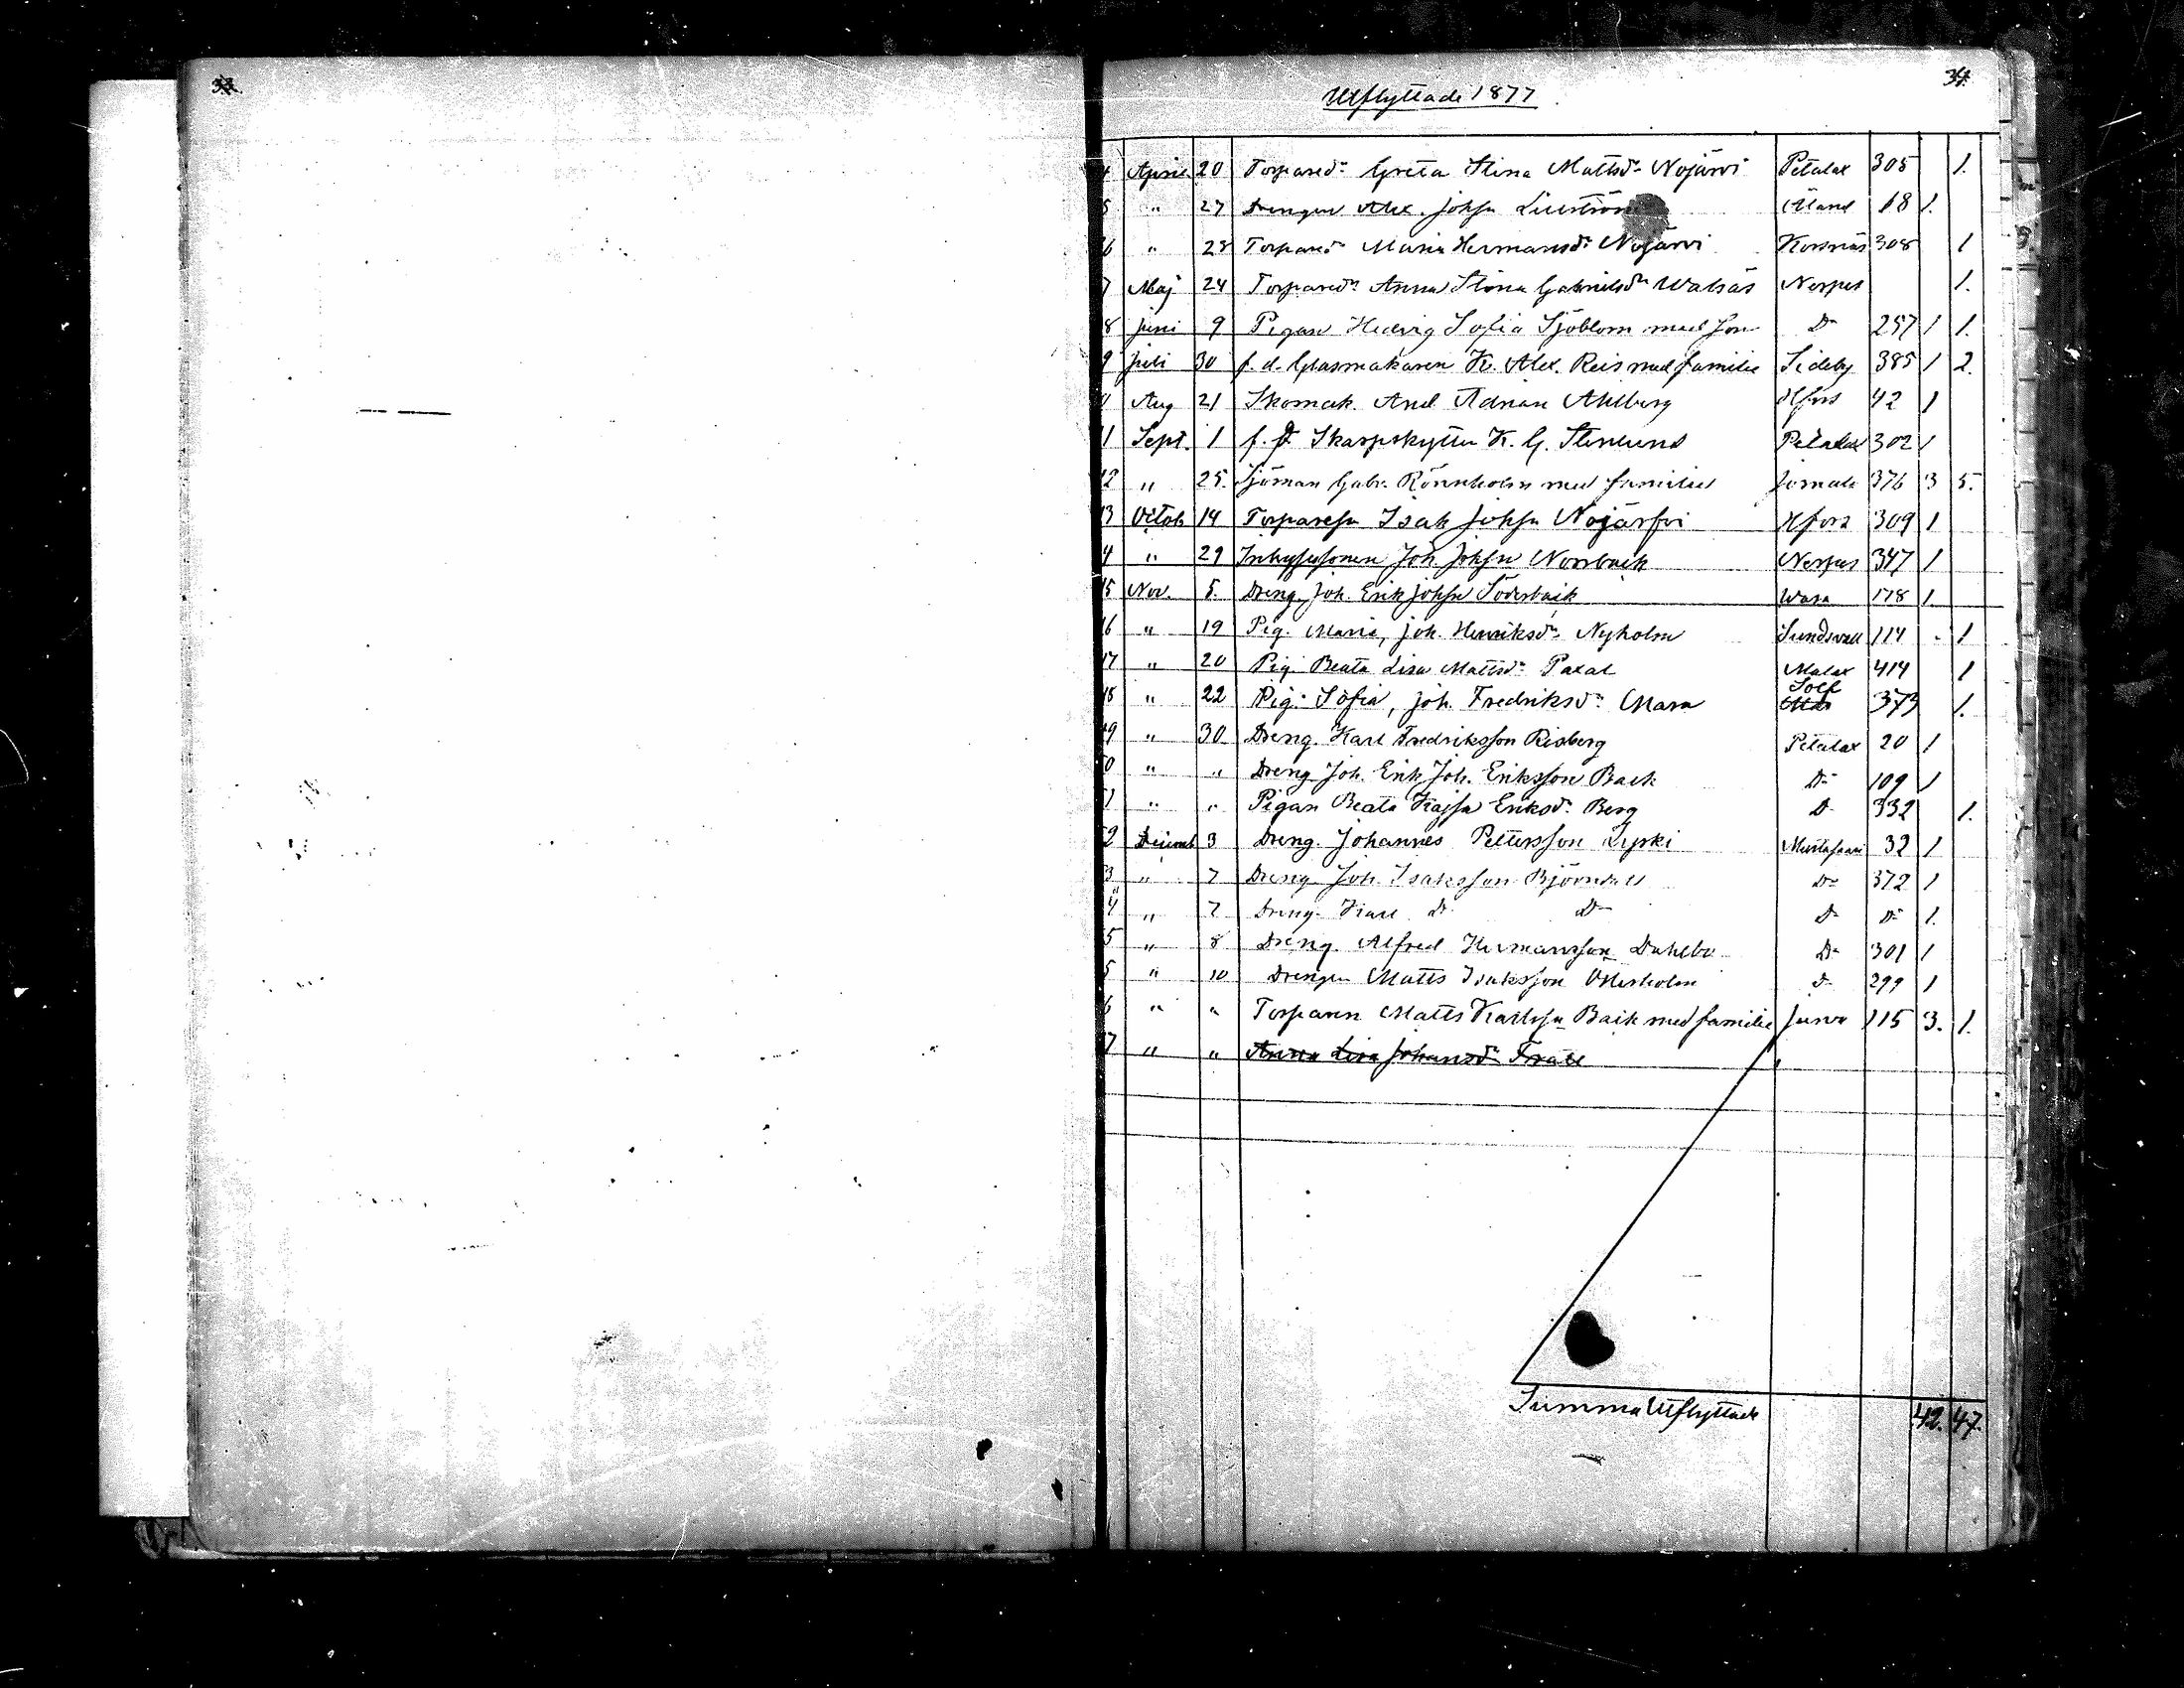 33.
34.
Utflyttade 1877
4 April 20 Torpared:r Greta Stina Mattsd:r Nojärvi Petalax 305 1.
5 " 27 Drengen Alex. Johsn Liljeström Åland 18 1.
6 " 28 Torpared:r Maria Hermansd:r Nojärvi Korsnäs 308 1
7 Maj 24 Torpared:r Anna Stina Gabrielsd:r Walsäs Nerpes 1.
8 Juni 9 Pigan Hedvig Sofia Sjöblom med son D:o 257 1 1.
9 Juli 30 f. d. Glasmakaren K. Alex. Reis med familie Sideby 385 1 2.
0 Aug 21 Skomak. And Adrian Ahlberg Hfors 42 1
11 Sept. 1 f. d. Skarpskytten K. G. Stenlund Petalax 302 1
12 " 25. Sjöman Gabr. Rönnholm med familie Jomala 376 3 5.
13 Octob 14 Torparesn Isak Johsn Nojärfvi Hfors 309 1
4 " 29 Inhysessonen Joh. Johsn Norrback Nerpes 347 1
15 Nov. 5. Dreng. Joh. Erik Johsn Söderback Wasa 178 1.
16 " 19 Pig. Maria, Joh. Henriksd:r Nyholm Sundsvall 114 - 1
17 " 20 Pig. Beata Lisa Mattsd:r Paxal Malax 414 1
18 " 22 Pig. Sofia, Joh. Fredriksd:r Mara Solf 373 1.
19 " 30 Dreng. Karl Fredriksson Risberg Petalax 20 1
0 " " Dreng Joh. Erik Joh. Eriksson Back D:o 109 1
1 " " Pigan Beata Kajsa Eriksd:r Berg D:o 332 1.
2 Decemb 3 Dreng. Johannes Pettersson Lyski Mustasaari 32 1
3 " 7 Dreng Joh. Isaksson Björndahl D:o 372 1
4 " 7 Dreng. Karl D:o D:o D:o D:o 1.
5 " 8 Dreng. Alfred Hermansson Dahlbo D:o 301 1
5 " 10 Drengen Matts Isaksson Österholm D:o 299 1
6 " " Torparen Matts Karlssn Back med familie Jurva 115 3. 1.
7 " " Anna Lisa Johansd:r Träll
Summa Utflyttade 42. 47.